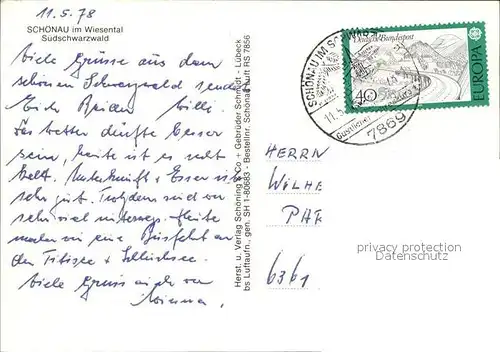 11.5.78
SCHÖNAU im Wiesental
Südschwarzwald
Viele Grüsse aus dem
schönen Schwarzwald sendet
Euch Beiden Willi.
Das Wetter dürfte besser
sein, heute ist es sehr
kalt. Unterkunft + Essen ist
sehr gut. Trotzdem sind wir
sehr viel unterwegs. Heute
machen wir eine Busfahrt an
den Titisee + Schluchsee.
Viele Grüsse auch von
Herst. u. Verlag Schöning & Co + Gebrüder Schmidt - Lübeck
bs Luftaufn., gen. SH 1-80683 - Bestellnr. Schönaluft RS 7856
SCHÖNAU IM SCHWARZW
11.5.
7869
Deutsche Bundespost
40
EUROPA
HERRN
WILHE
PAR
6361
privacy protection
Datenschutz